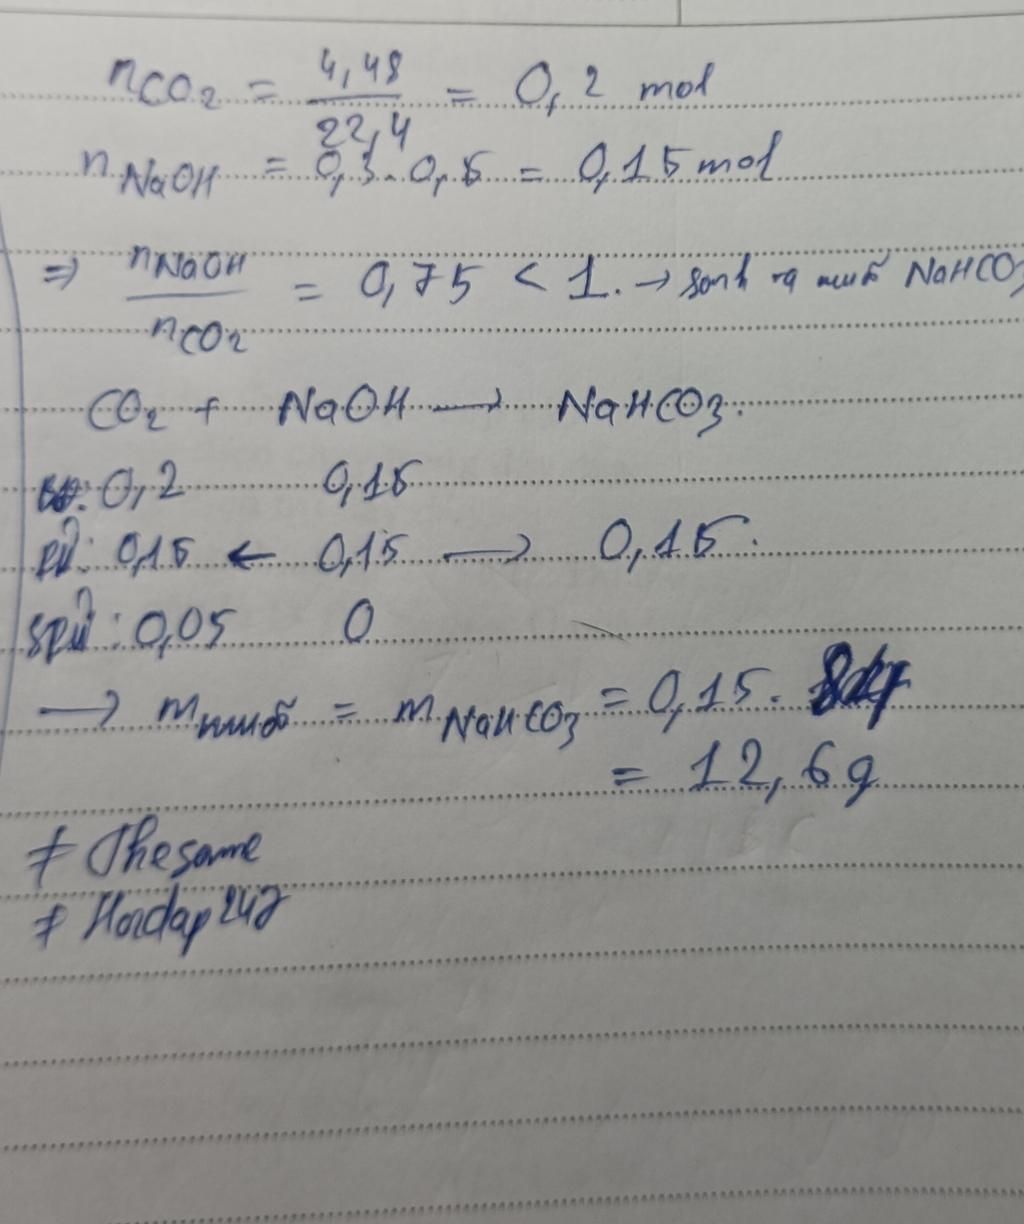 nCO2 = 4,48/22,4 = 0,2 mol
nNaOH = 0,3.0,5 = 0,15 mol
=> nNaOH/nCO2 = 0,75 < 1. → sinh ra muối NaHCO3
CO2 + NaOH → NaHCO3.
0,2 0,15
pứ: 0,15 ← 0,15 → 0,15.
spứ: 0,05 0
→ m muối = mNaHCO3 = 0,15. 84
= 12,6g
≠ Thesame
≠ Hoidap247